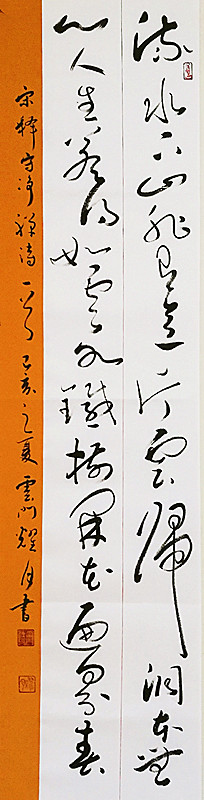 流水下山非有意片雲歸洞本無
心人生若得如雲水鐵樹開花遍界春
宋釋守淨禪詩一首己亥之夏雲門耀月書